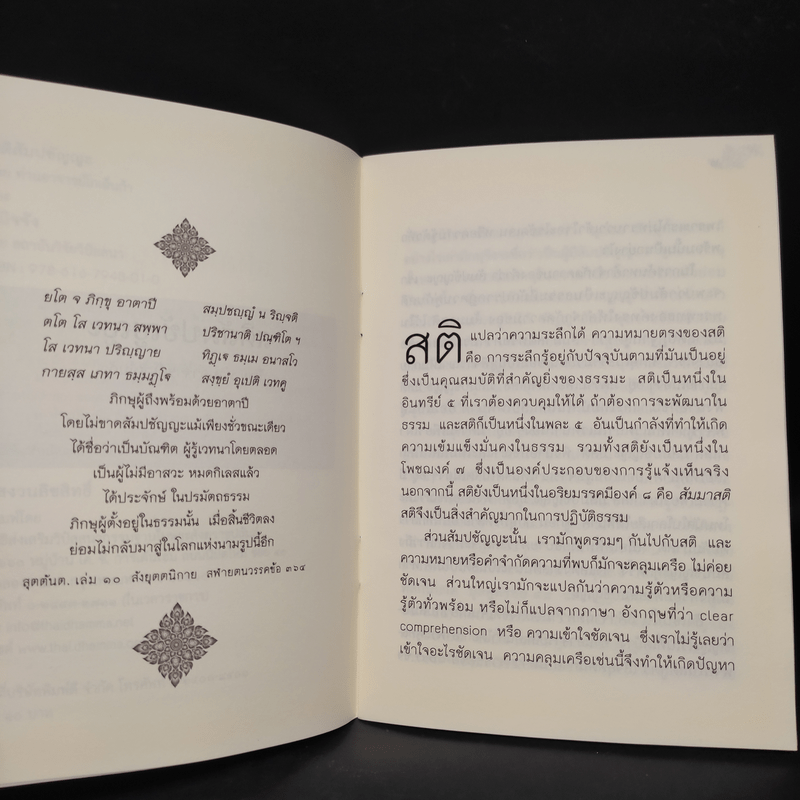 ยโต จ ภิกฺขุ อาตาปี สมฺปชญฺญํ น ริญฺจติ
ตโต โส เวทนา สพฺพา ปริชานาติ ปณฺฑิโต ฯ
โส เวทนา ปริญฺญาย ทิฏฺเฐ ธมฺเม อนาสโว
กายสฺส เภทา ธมฺมฏฺโฐ สงฺขฺยํ อุเปติ เวทคู
ภิกษุผู้ถึงพร้อมด้วยอาตาปี
โดยไม่ขาดสัมปชัญญะแม้เพียงชั่วขณะเดียว
ได้ชื่อว่าเป็นบัณฑิต ผู้รู้เวทนาโดยตลอด
เป็นผู้ไม่มีอาสวะ หมดกิเลสแล้ว
ได้ประจักษ์ ในปรมัตถธรรม
ภิกษุผู้ตั้งอยู่ในธรรมนั้น เมื่อสิ้นชีวิตลง
ย่อมไม่กลับมาสู่ในโลกแห่งนามรูปนี้อีก
สุตตันต. เล่ม ๑๐ สังยุตตนิกาย สฬายตนวรรคข้อ ๓๖๔
สติ แปลว่าความระลึกได้ ความหมายตรงของสติ
คือ การระลึกรู้อยู่กับปัจจุบันตามที่มันเป็นอยู่
ซึ่งเป็นคุณสมบัติที่สำคัญยิ่งของธรรมะ สติเป็นหนึ่งใน
อินทรีย์ ๕ ที่เราต้องควบคุมให้ได้ ถ้าต้องการจะพัฒนาใน
ธรรม และสติก็เป็นหนึ่งในพละ ๕ อันเป็นกำลังที่ทำให้เกิด
ความเข้มแข็งมั่นคงในธรรม รวมทั้งสติยังเป็นหนึ่งใน
โพชฌงค์ ๗ ซึ่งเป็นองค์ประกอบของการรู้แจ้งเห็นจริง
นอกจากนี้ สติยังเป็นหนึ่งในอริยมรรคมีองค์ ๘ คือ สัมมาสติ
สติจึงเป็นสิ่งสำคัญมากในการปฏิบัติธรรม
ส่วนสัมปชัญญะนั้น เรามักพูดรวมๆ กันไปกับสติ และ
ความหมายหรือคำจำกัดความที่พบก็มักจะคลุมเครือ ไม่ค่อย
ชัดเจน ส่วนใหญ่เรามักจะแปลกันว่าความรู้ตัวหรือความ
รู้ตัวทั่วพร้อม หรือไม่ก็แปลจากภาษา อังกฤษที่ว่า clear
comprehension หรือ ความเข้าใจชัดเจน ซึ่งเราไม่รู้เลยว่า
เข้าใจอะไรชัดเจน ความคลุมเครือเช่นนี้จึงทำให้เกิดปัญหา